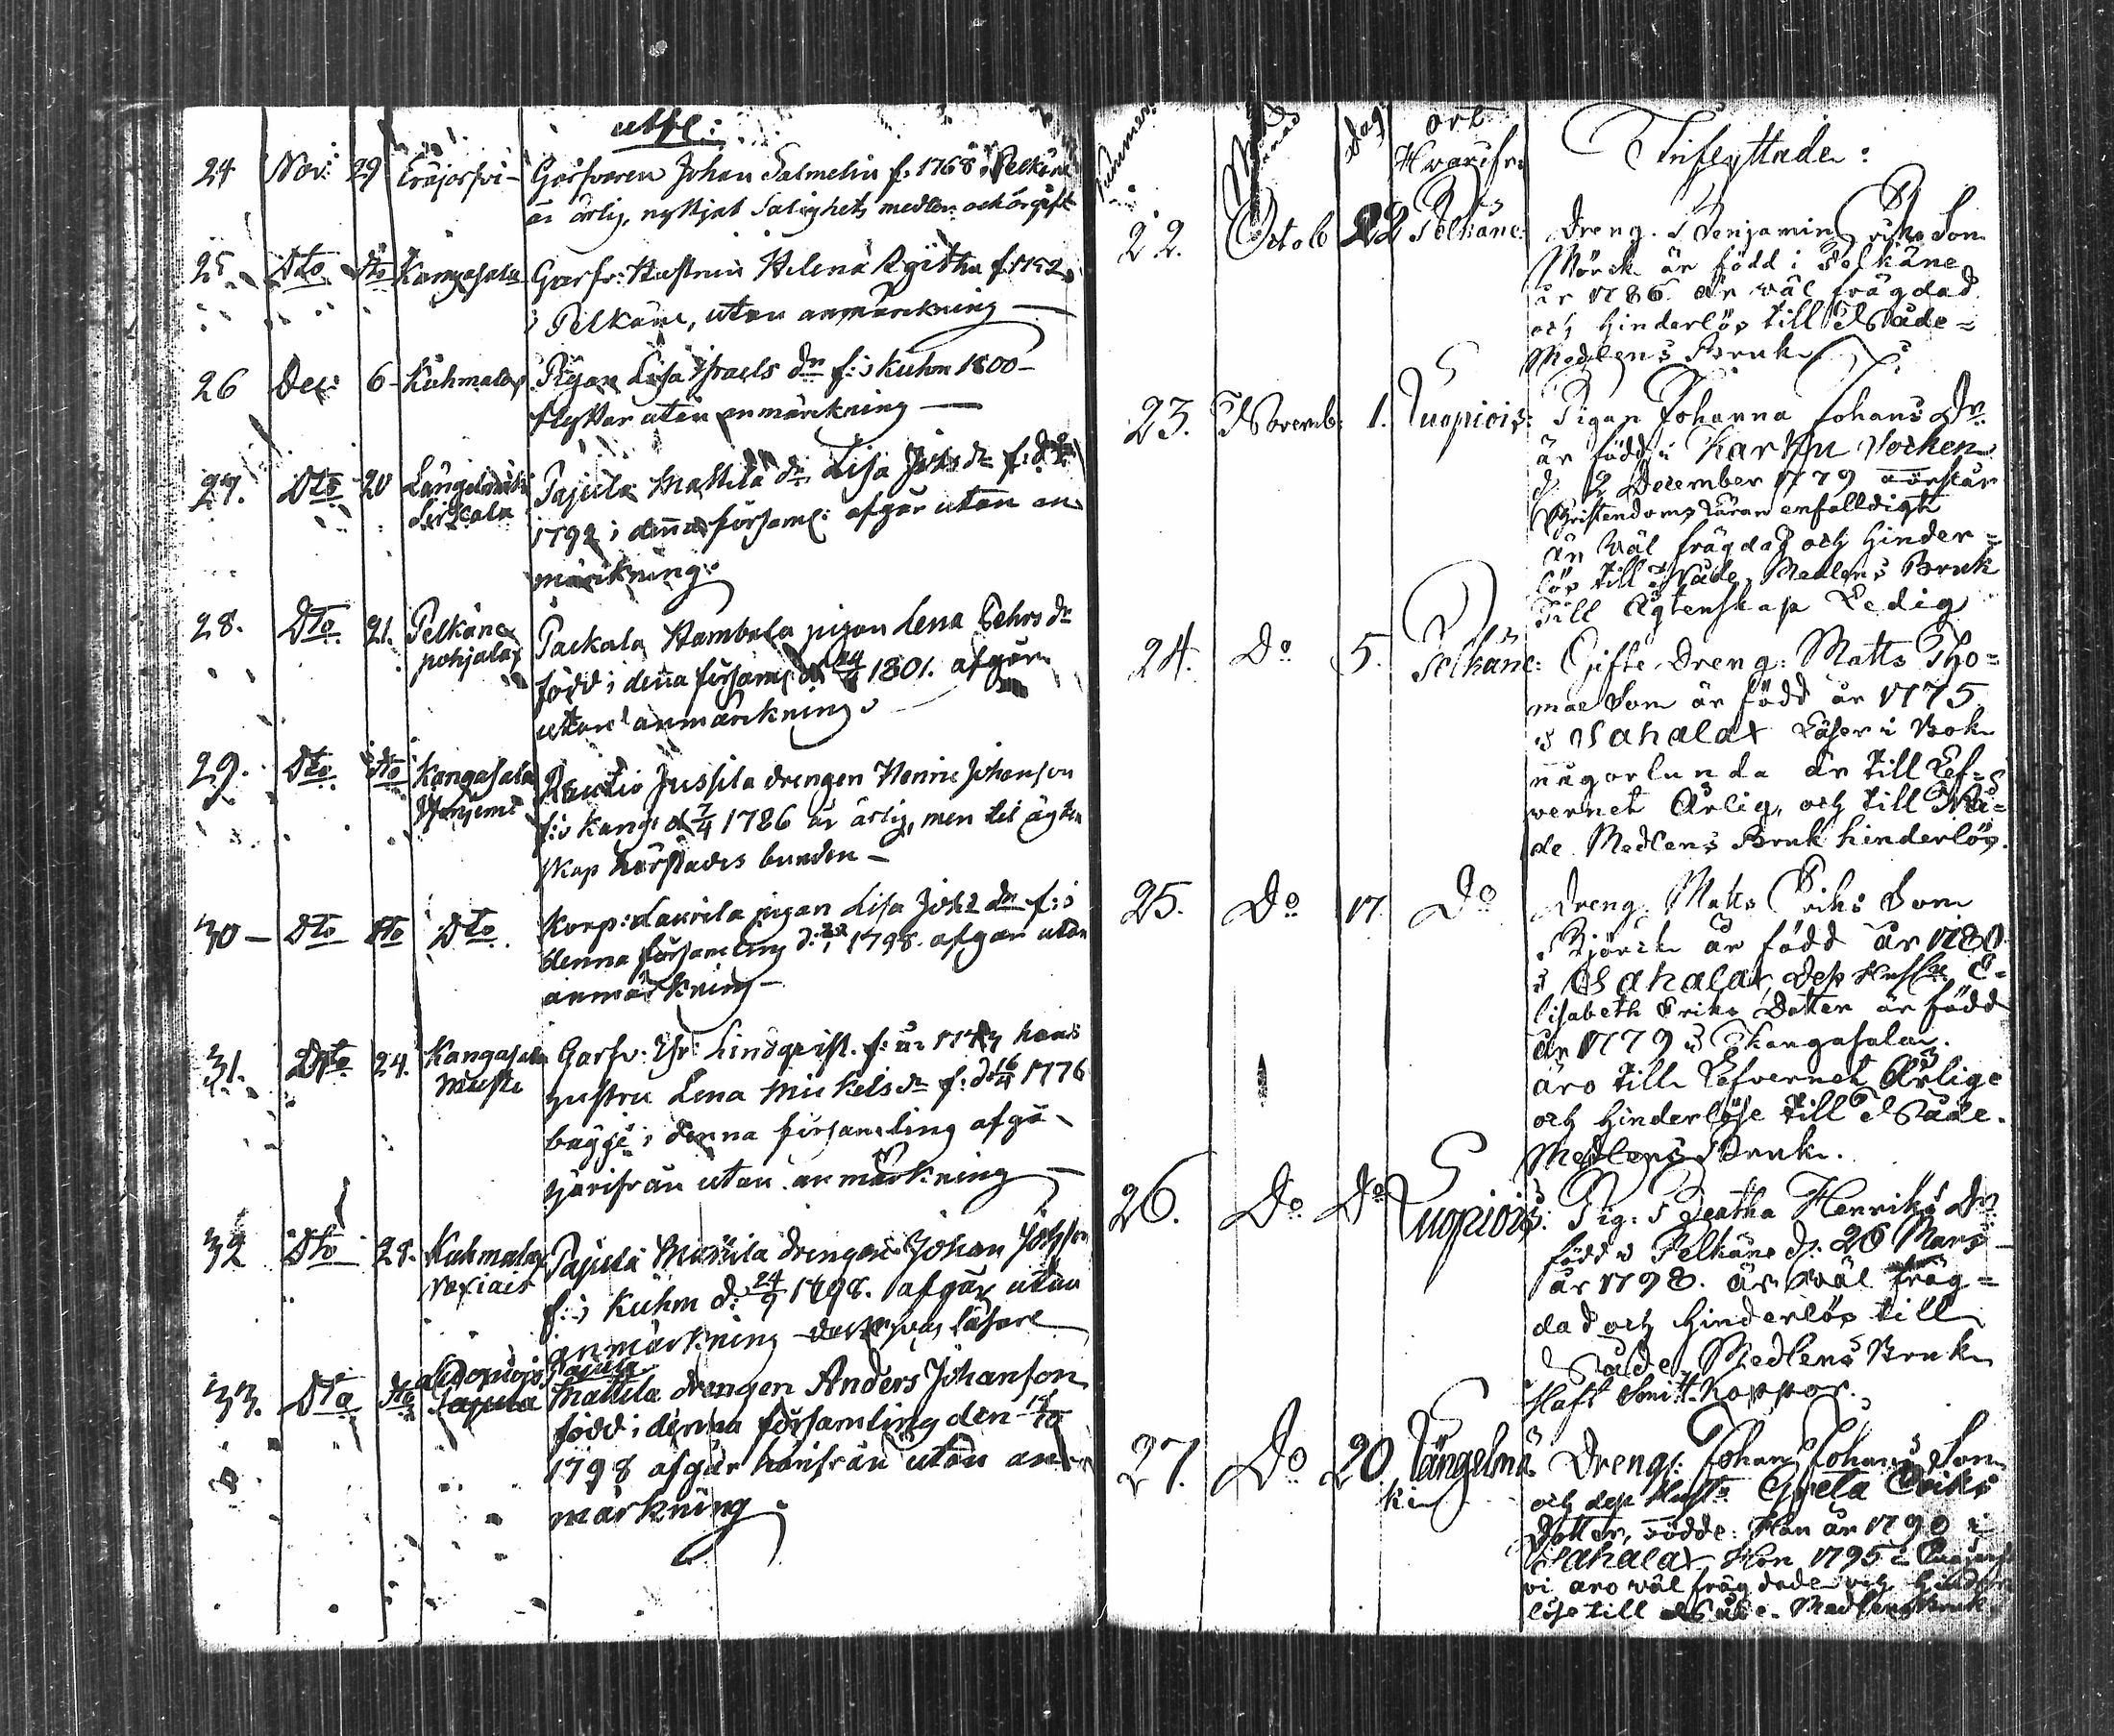 utfl:
24 Nov: 29 Eräjärfvi – Garfvaren Johan Salmelin f: 1768 i Pelkäne
är ärlig, nyttjat Salighets medlen och ogift
25. Dto Dto Kangasala Garfv: Hustrun Helena f: 1752
i Pelkäne, utan anmärckning —
26 Dec: 6 – Kuhmalax Pigan Lisa Israels dr f: i Kuhm 1800 –
flyttar utan anmärckning —
27. Dto 20 Längelmäki Pajula Mattila dr Lisa Johs dr f: d
1792 i denna församl: afgår utan an
märckning.
28. Dto 21. Pelkäne Packala Rambala pigan Lena Pehrs dr
pohjalax född i denna församl d 1801. afgår
utan anmärckning.
29. Dto Dto Kangasala Rautio Jussila drengen Henric Johanson
f: i Kang: d 7/4 1786 är ärlig, men til ägten
skap härstädes bunden –
30 – Dto Dto Dto. Korp: Laurila pigan Lisa Joh: dr f: i
denna församling d: 1798. afgår utan
anmärkning –
31. Dto 24. Kangasala Garfv: Lindqvist. f: år hans
hustru Lena Mickels dr f: d 16/4 1776
bägge i denna församling afgå
härifrån utan anmärkning —
32 Dto 28. Kuhmalax Pajula Mattila drengen Johan Johsson
f: i Kuhm d: 24/9 1798. afgår utan
anmärkning läsare
33. Dto Dto Luopiois Pajula
Pajula Mattila drengen Anders Johanson
född i denna församling den
1798 afgår härifrån utan an
märkning.
Nummer Månad Dag Ort Hvarifrn Inflyttade:
22. Octob 22 Pelkäne: Dreng. Benjamin Eriks Son
Mörck är född i Pelkäne
år 1786. är wäl frägdad
och hinderlös till Nåde=
Medlens Bruk
23. Novemb: 1. Luopiois: Pigan Johanna Johans Dr.
är född i Karkku Socken
d. 2 December 1779 förstår
Christendoms Läran enfalldigt
är wäl frägdad och hinder=
lös till Nåde Medlens Bruk
Till Ägtenskap Ledig
24. Do 5. Pelkäne: Gifte Dreng: Matts Tho=
mae Son är född år 1775
i Sahalax Läser i Bok
någorlunda är till Lef=
vernet Ärlig, och till Nå=
de Medlens Bruk hinderlös.
25. Do 17. Do Dreng. Matts Eriks Son
Björck är född år 1780
i Sahalax, dess Hustru E=
lisabeth Eriks Dotter är född
år 1779 i Kangasala.
äro till Lefvernet Ärlige
och hinderlöse till Nåde.
Medlens Bruk.
26. Do Do Luopiois: Pig: Beatha Henriks Dr.
född i Pelkäne d: 26 Mars
år 1798. är wäl fräg=
dad och hinderlös till
Nåde Medlens Bruk
Haft Smitt Koppor.
27. Do 20 Längelmä Dreng: Johan Johans Son
ki och dess Hustr Greta Eriks
Dotter, födde: Han år 1790 i
Sahalax, Hon 1795 i
äro wäl frägdade och hinder
löse till Nåde. Medlens Bruk